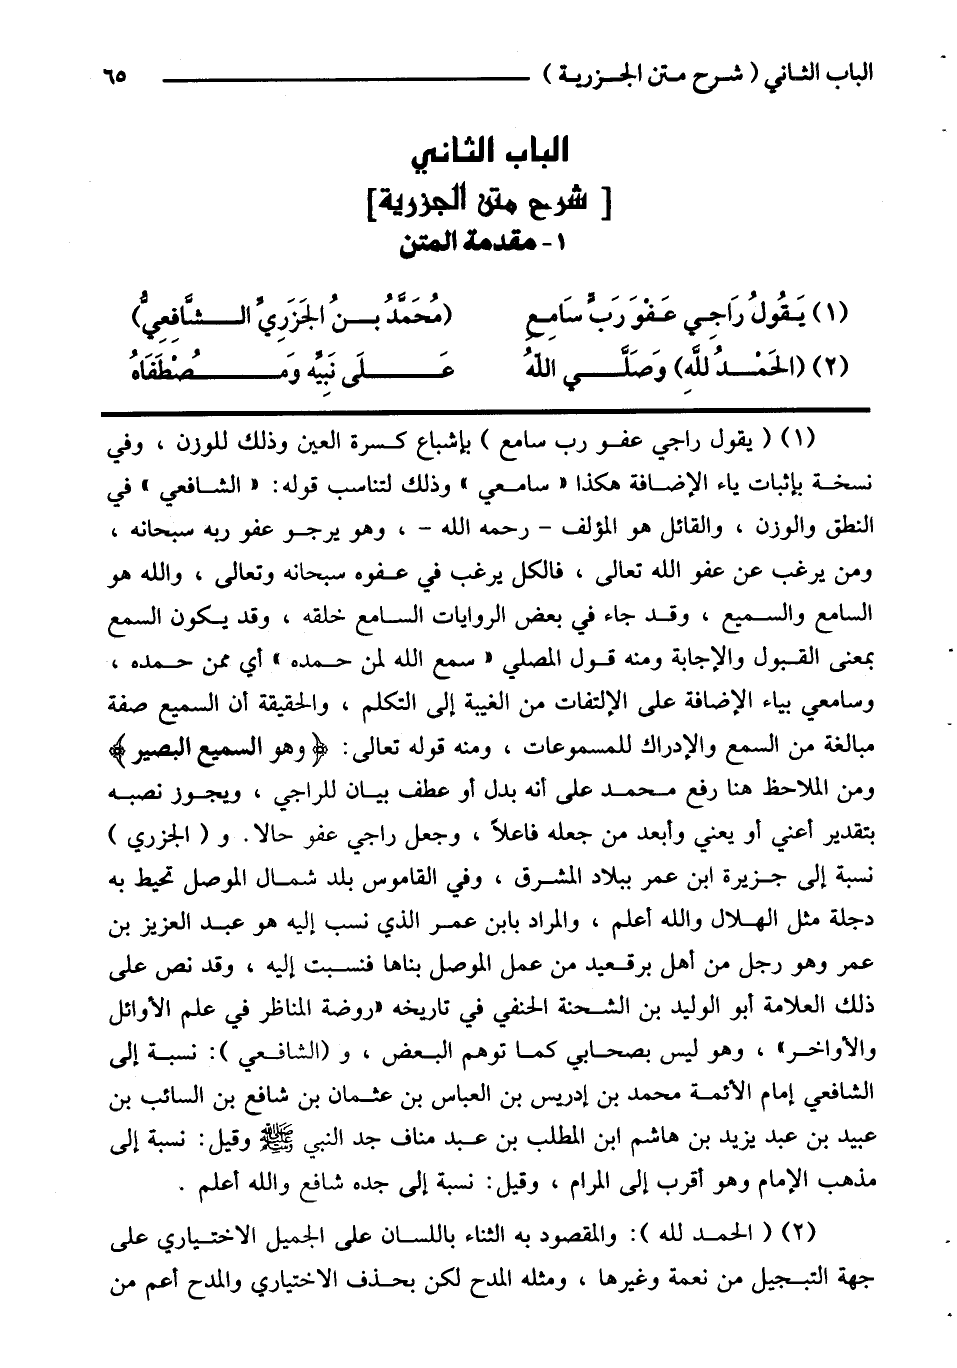 الباب الثاني ( شرح متن الجزرية ) ٦٥
الباب الثاني
[ شرح متن الجزرية]
١- مقدمة المتن
(١) يَقُولُ رَاجِي عَفْوِ رَبٍّ سَامِعِ (مُحَمَّدُ بْنُ الجَزَرِيِّ الشَّافِعِيُّ)
(٢) (الحَمْدُ للَّهِ) وَصَلَّى اللَّهُ عَلَى نَبِيِّهِ وَمُصْطَفَاهُ
(١) ( يقول راجي عفو رب سامع ) بإشباع كسرة العين وذلك للوزن ، وفي
نسخة بإثبات ياء الإضافة هكذا « سامعي » وذلك لتناسب قوله: « الشافعي » في
النطق والوزن ، والقائل هو المؤلف – رحمه الله – ، وهو يرجو عفو ربه سبحانه ،
ومن يرغب عن عفو الله تعالى ، فالكل يرغب في عفوه سبحانه وتعالى ، والله هو
السامع والسميع ، وقد جاء في بعض الروايات السامع خلقه ، وقد يكون السمع
بمعنى القبول والإجابة ومنه قول المصلي « سمع الله لمن حمده » أي ممن حمده ،
وسامعي بياء الإضافة على الإلتفات من الغيبة إلى التكلم ، والحقيقة أن السميع صفة
مبالغة من السمع والإدراك للمسموعات ، ومنه قوله تعالى: ﴿ وهو السميع البصير ﴾
ومن الملاحظ هنا رفع محمد على أنه بدل أو عطف بيان للراجي ، ويجوز نصبه
بتقدير أعني أو يعني وأبعد من جعله فاعلاً ، وجعل راجي عفو حالا. و ( الجزري )
نسبة إلى جزيرة ابن عمر ببلاد المشرق ، وفي القاموس بلد شمال الموصل تحيط به
دجلة مثل الهلال والله أعلم ، والمراد بابن عمر الذي نسب إليه هو عبد العزيز بن
عمر وهو رجل من أهل برقعيد من عمل الموصل بناها فنسبت إليه ، وقد نص على
ذلك العلامة أبو الوليد بن الشحنة الحنفي في تاريخه «روضة المناظر في علم الأوائل
والأواخر» ، وهو ليس بصحابي كما توهم البعض ، و (الشافعي ): نسبة إلى
الشافعي إمام الأئمة محمد بن إدريس بن العباس بن عثمان بن شافع بن السائب بن
عبيد بن عبد يزيد بن هاشم ابن المطلب بن عبد مناف جد النبي ﷺ وقيل: نسبة إلى
مذهب الإمام وهو أقرب إلى المرام ، وقيل: نسبة إلى جده شافع والله أعلم .
(٢) ( الحمد لله ): والمقصود به الثناء باللسان على الجميل الاختياري على
جهة التبجيل من نعمة وغيرها ، ومثله المدح لكن بحذف الاختياري والمدح أعم من